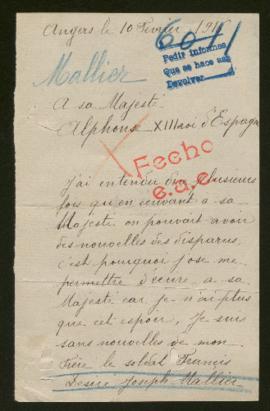 Angers le 10 Février 1916
601
Pedir informes
Que se hace una
Devolver
Mallier
A sa Majesté
Alphonse XIII roi d'Espagne
Fecho
e.a.c.
j'ai entendu dire plusieurs
fois qu'en écrivant a sa
Majesté on pouvait avoir
des nouvelles des disparus
c'est pourquoi j'ose me
permettre d'écrire a sa
Majesté car je n'ai plus
que cet espoir, Je suis
sans nouvelles de mon
Frère le soldat Francis
Desire Joseph Mallier